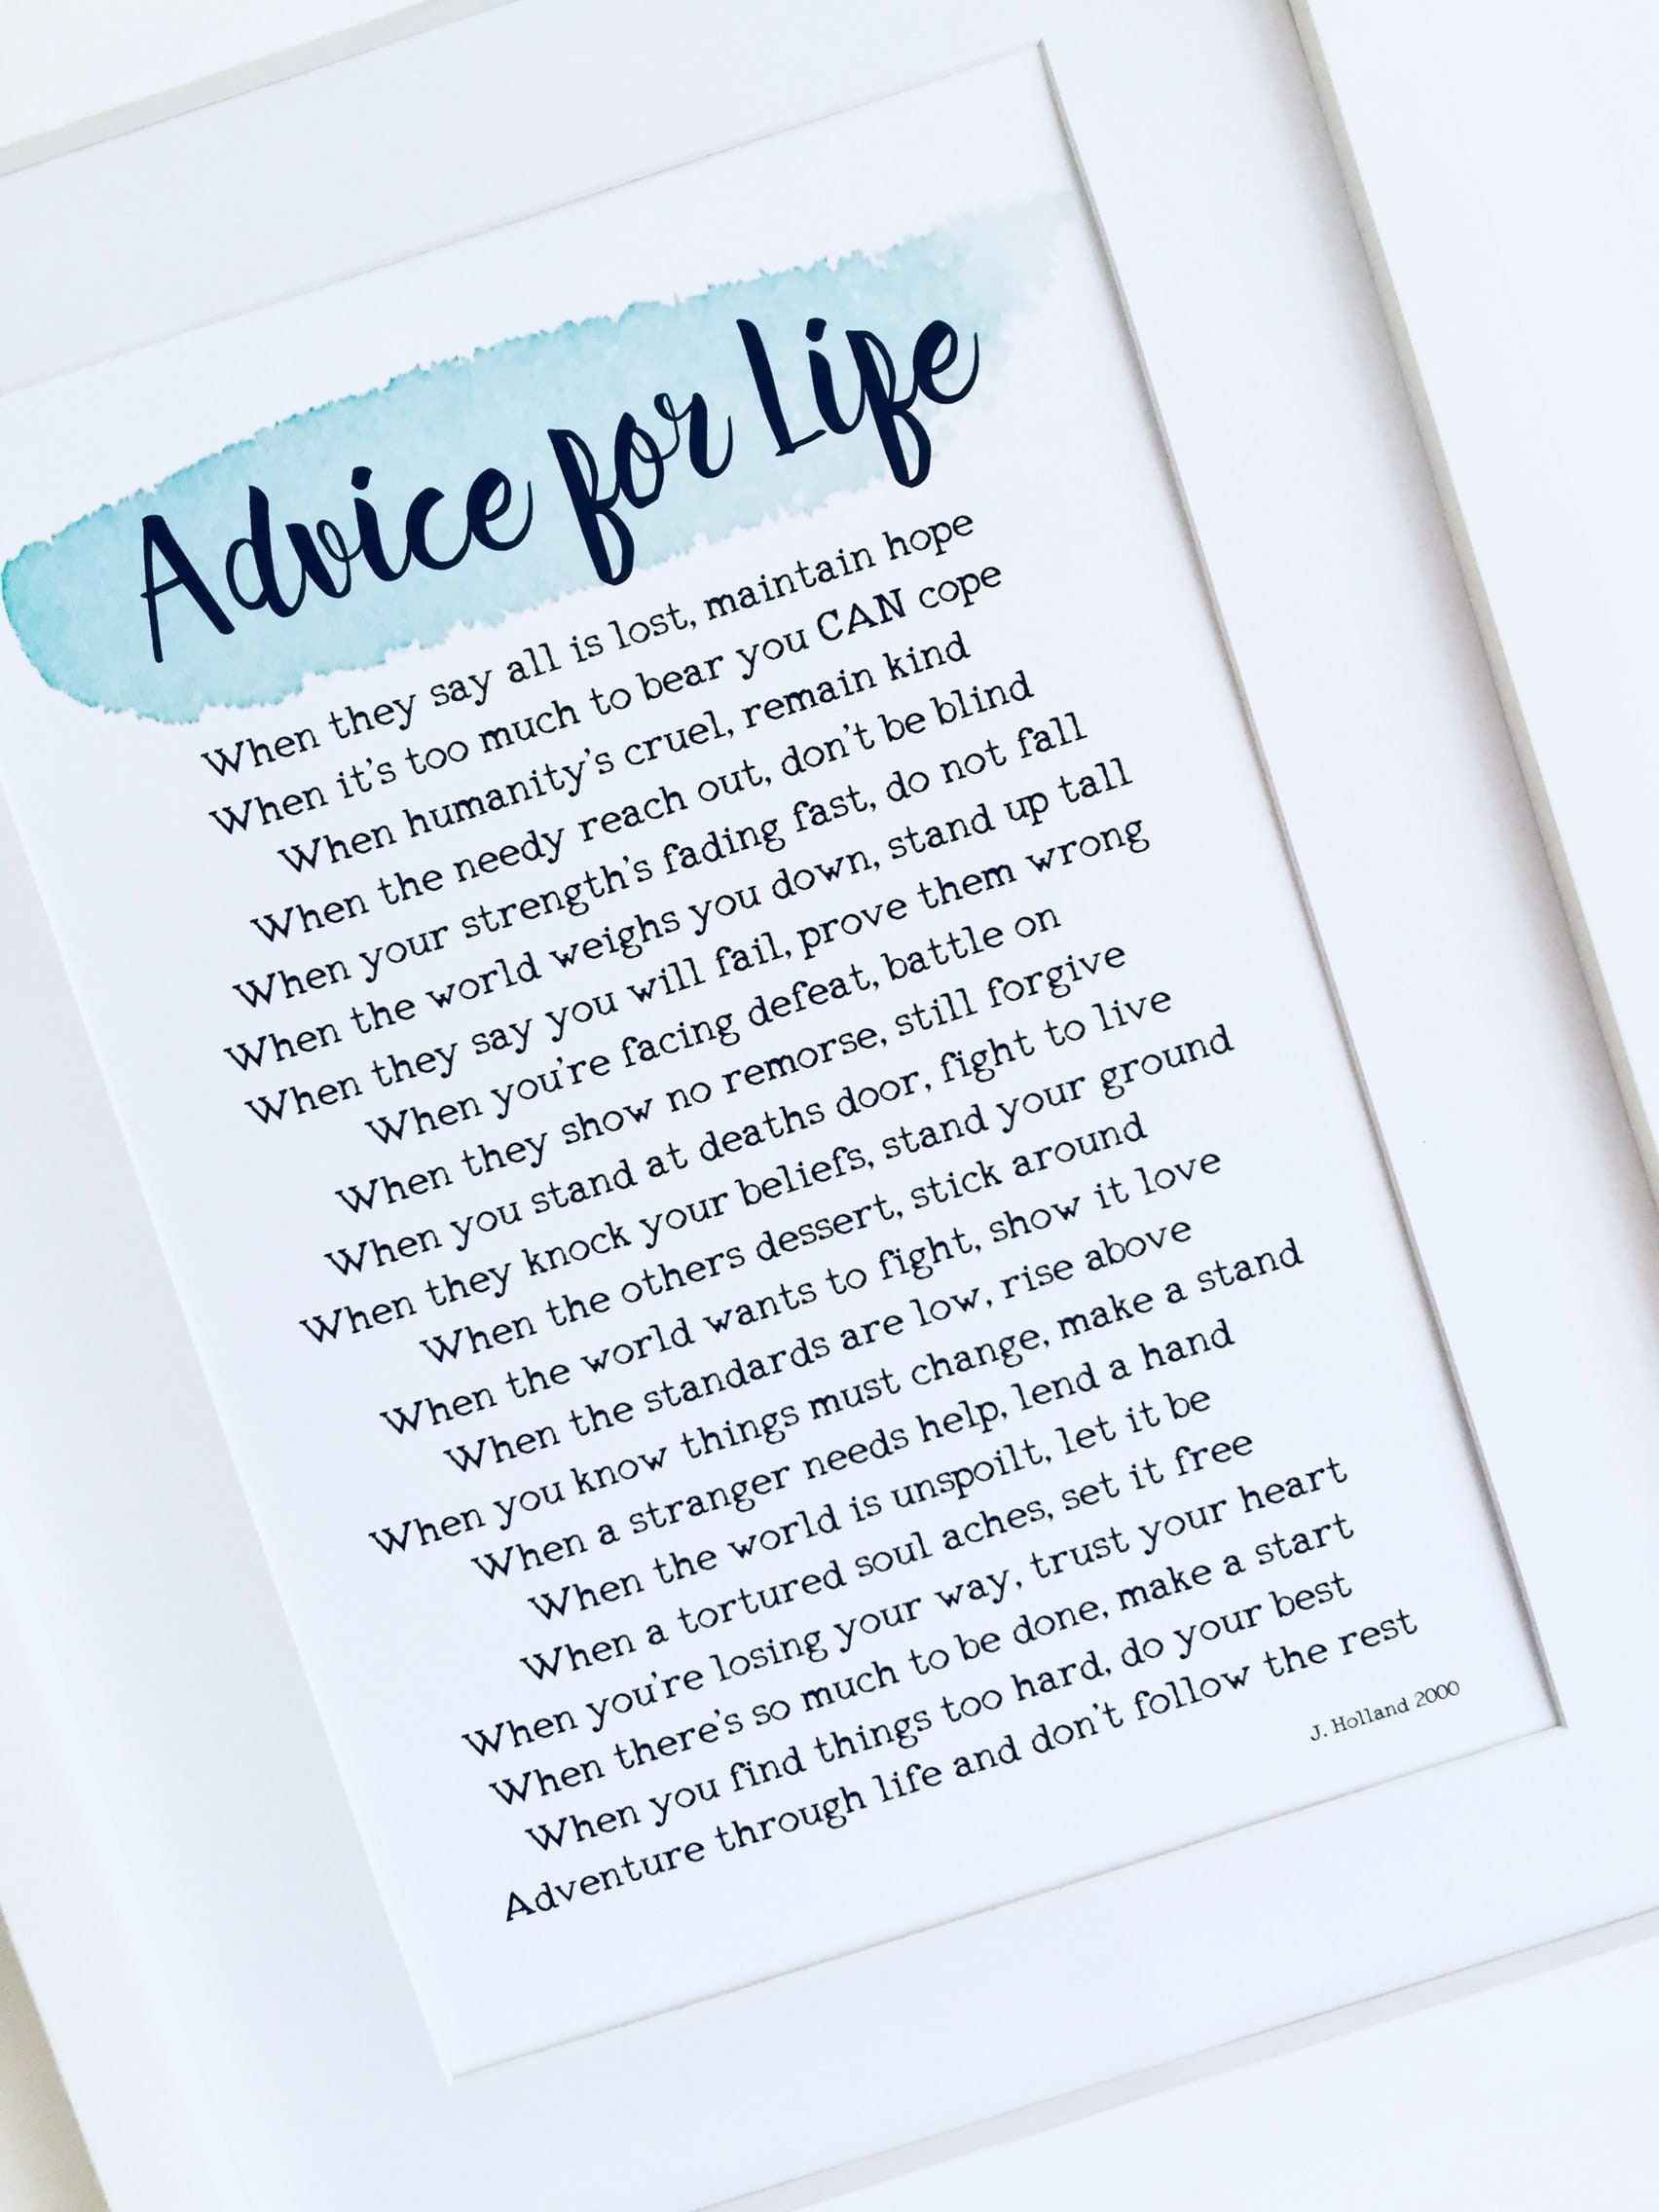 Advice for Life
When they say all is lost, maintain hope
When it's too much to bear you CAN cope
When humanity's cruel, remain kind
When the needy reach out, don't be blind
When your strength's fading fast, do not fall
When the world weighs you down, stand up tall
When they say you will fail, prove them wrong
When you're facing defeat, battle on
When they show no remorse, still forgive
When you stand at deaths door, fight to live
When they knock your beliefs, stand your ground
When the others dessert, stick around
When the world wants to fight, show it love
When the standards are low, rise above
When you know things must change, make a stand
When a stranger needs help, lend a hand
When the world is unspoilt, let it be
When a tortured soul aches, set it free
When you're losing your way, trust your heart
When there's so much to be done, make a start
When you find things too hard, do your best
Adventure through life and don't follow the rest
J. Holland 2000